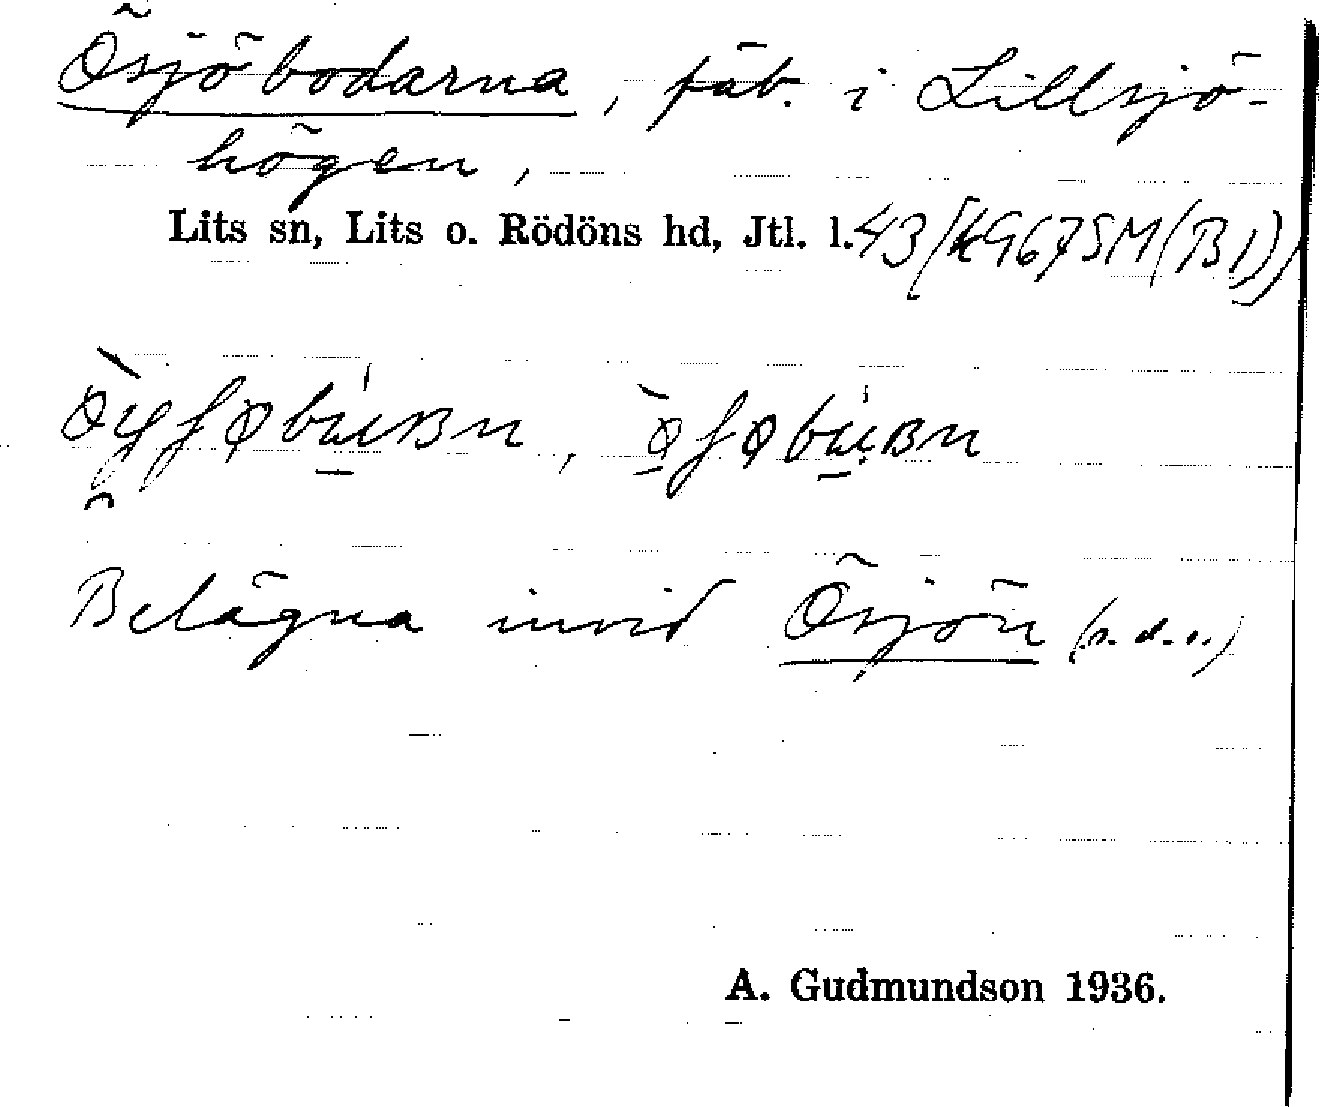 Ösjöbodarna, fäb. i Lillsjö-
högen,
Lits sn, Lits o. Rödöns hd, Jtl. l. 43/K967SM(B1))
Belägna invid Ösjön (s.d.o.)
A. Gudmundson 1936.